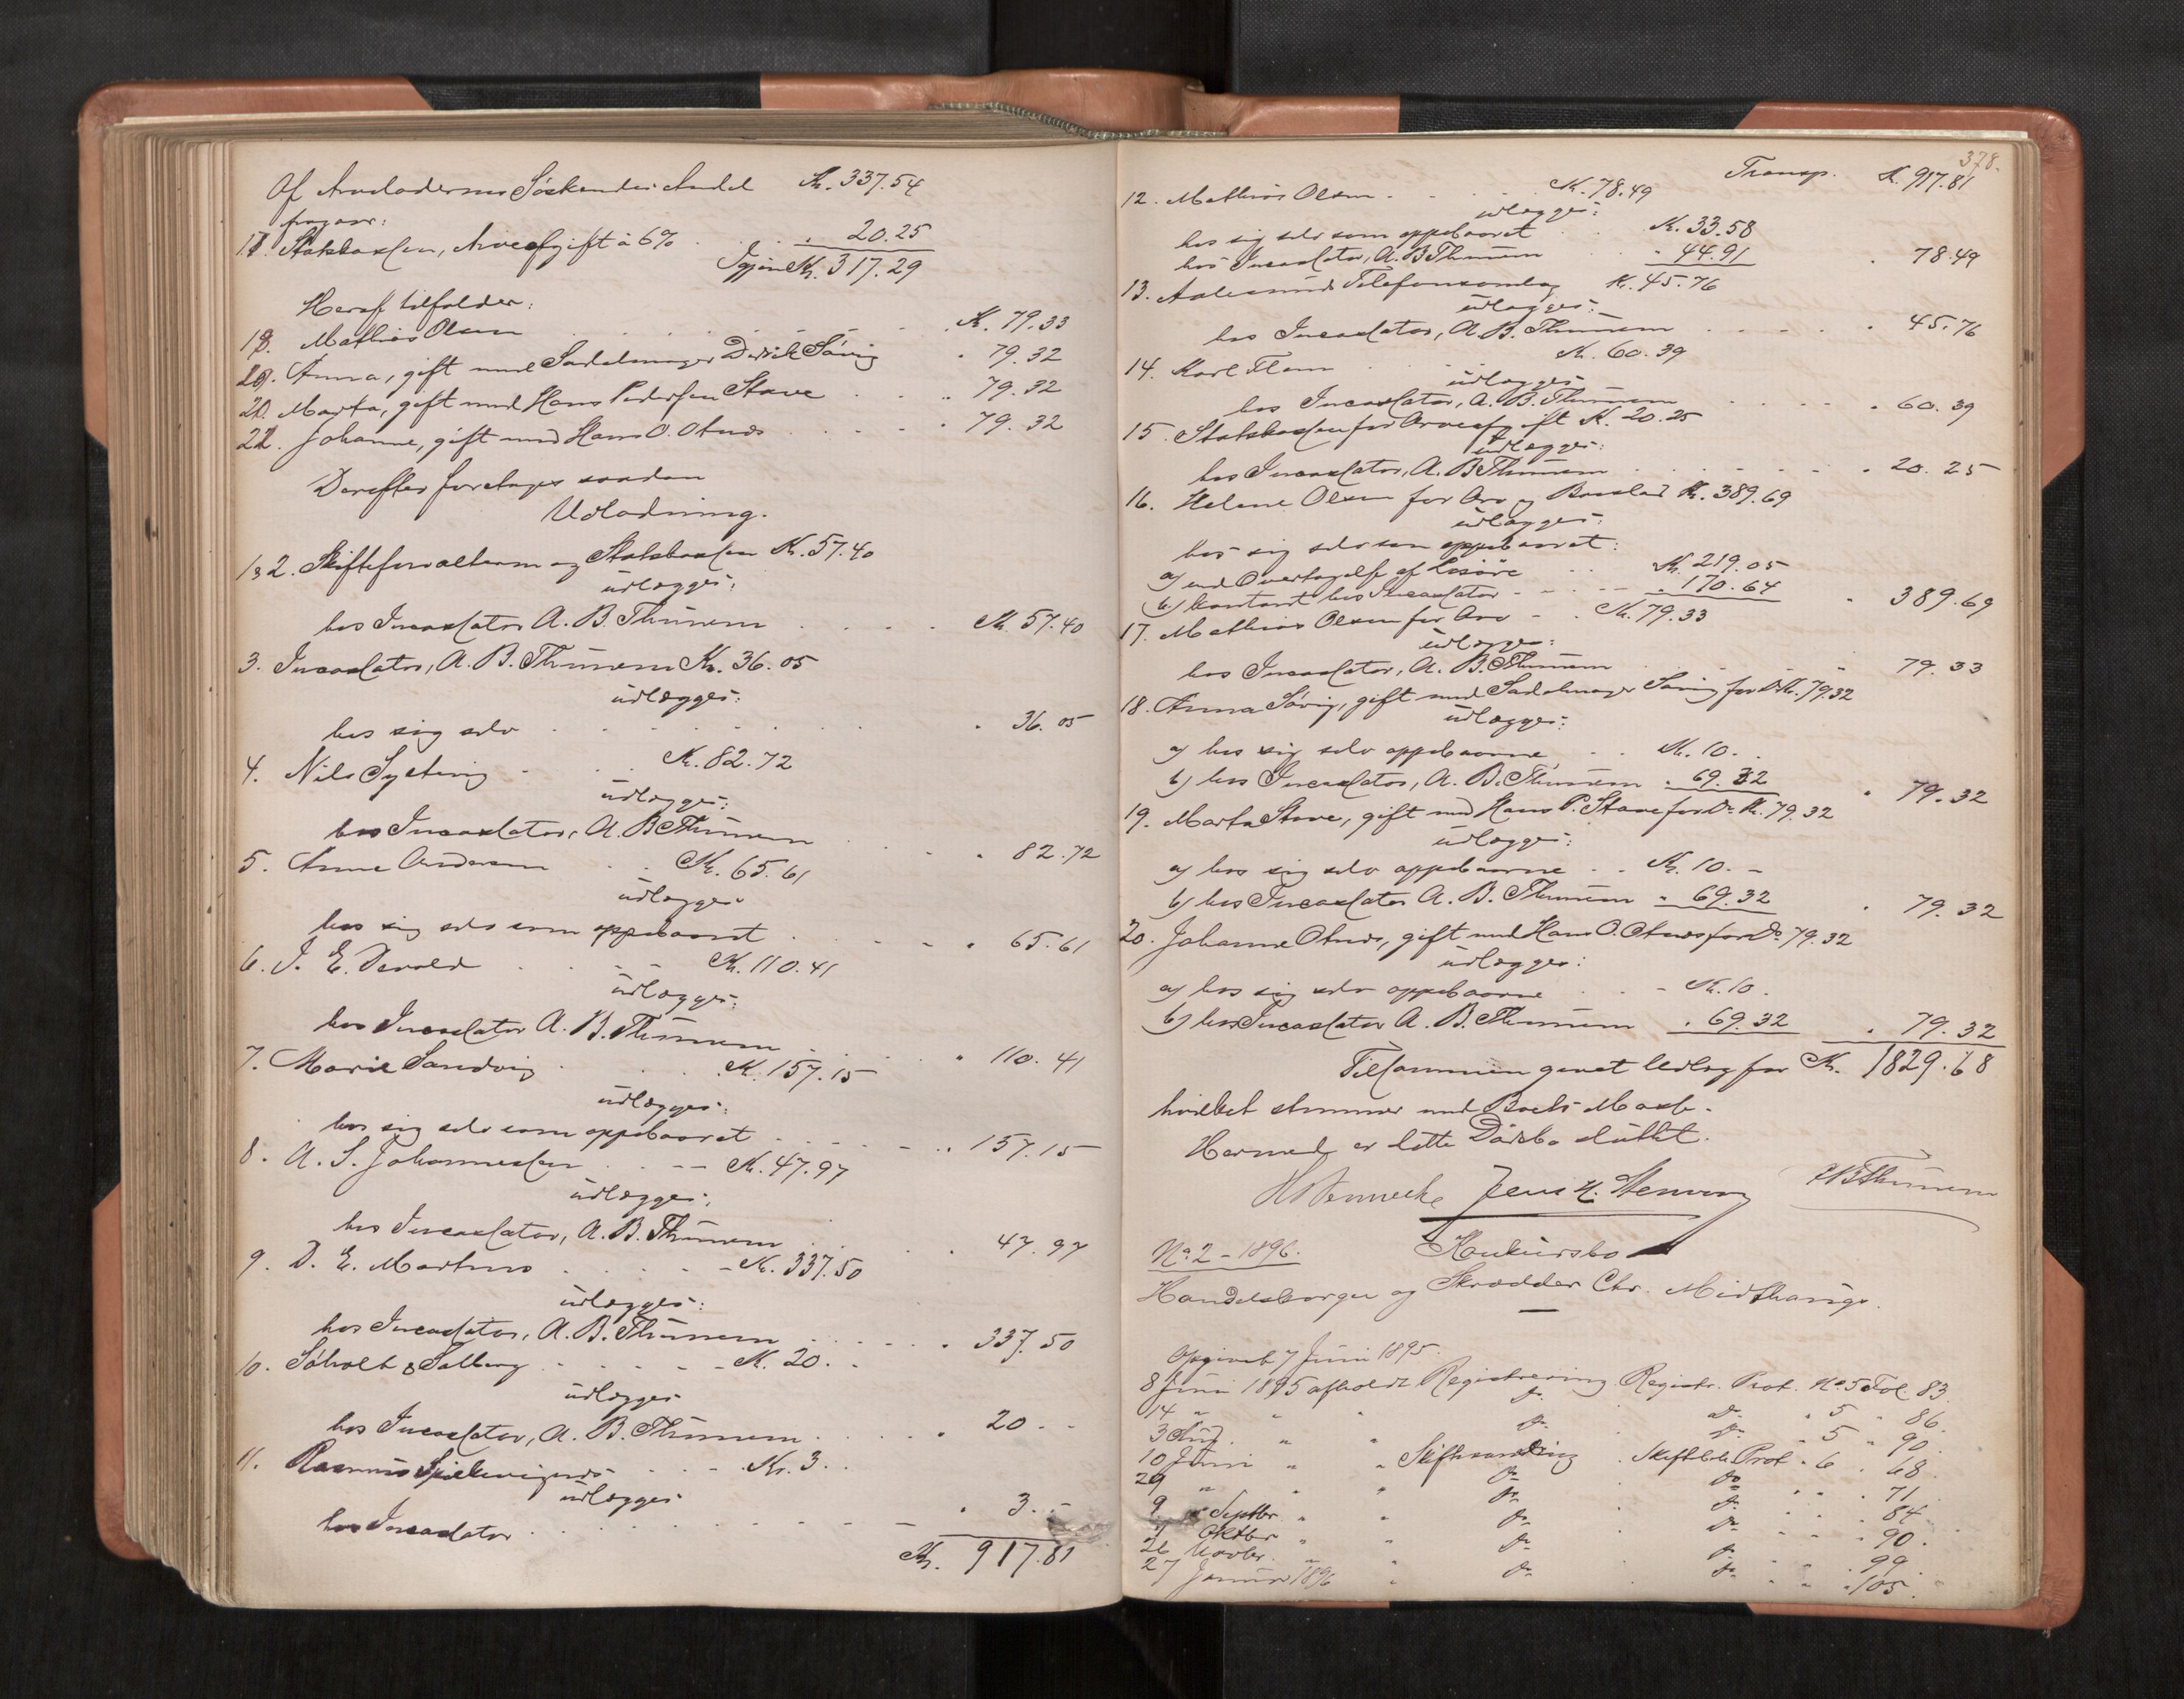 Af Arveladerens Söskendes Andel Kr. 337.54
fragaar:
18. Statskassen, Arveafgift à 6% . . . 20.25
Igjen Kr. 317.29
Heraf tilfalder:
19. Mathias Olsen . . . Kr. 79.33
20. Anna, gift med Sadelmager Sövig . 79.32
21. Marta, gift med Hans Pedersen Stave . . " 79.32
22. Johanne, gift med Hans O. . . . . 79.32
Derefter foretages saadan
Udlodning.
1 & 2. Skifteforvalteren og Statskassen Kr. 57.40
udlægges:
hos Incassator A. B. Thunem . . . . Kr. 57.40
3. Incassator, A. B. Thunem Kr. 36.05
udlægges:
hos sig selv . . . . . . 36.05
4. Nils Sylteviig . . Kr. 82.72
udlægges:
hos Incassator, A. B Thunem . . . . 82.72
5. Anne Andersen . . Kr. 65.61
udlægges
hos sig selv som oppebaaret . . . . 65.61
6. I. E. Devold . . . Kr. 110.41
udlægges:
hos Incassator A. B. Thunem . . . " 110.41
7. Marie Sandvig . . . Kr. 157.15
udlægges:
hos sig selv som oppebaaret . . . . 157.15
8. A. S. Johannessen . . . Kr. 47.97
udlægges:
hos Incassator, A. B. Thunem . . . . 47.97
9. D. E. . . . Kr. 337.50
udlægges:
hos Incassator, A. B. Thunem . . . . 337.50
10. Söholt & Solberg . . . Kr. 20. -
udlægges
hos Incassator, A. B. Thunem . . . . 20 - -
11. Rasmus . . . Kr. 3. .
udlægges
hos Incassator . . . . . . 3. -
Kr. 917.81
378.
Transp. Kr. 917.81
12. Mathias Olsen . . . Kr. 78.49
udlægges:
hos sig selv som oppebaaret . . Kr. 33.58
hos Incassator, A. B Thunem . . 44.91 . 78.49
13. Aalesunds Telefonsamlag Kr. 45.76
udlægges:
hos Incassator, A. B. Thunem . . . . 45.76
14. Karl Flem . . . Kr. 60.39
udlægges
hos Incassator, A. B. Thunem . . . . 60.39
15. Statskassen for Arveafgift Kr. 20.25
udlægges:
hos Incassator, A. B Thunem . . . . 20.25
16. Helene Olsen for Arv og Boeslod Kr. 389.69
udlægges:
hos sig selv som oppebaaret:
a) ved Overtagelse af Lösöre . . Kr. 219.05
b) kontant hos Incassator . . . 170.64 . 389.69
17. Mathias Olsen for Arv - . Kr. 79.33
udlægges:
hos Incassator, A. B. Thunem . . . . 79.33
18. Anna Sövig, gift med Sadelmager Sövig for Do Kr. 79.32
udlægges:
a) hos sig selv oppebaarne . . Kr. 10. -
b) hos Incassator, A. B. Thunem . 69.32 . 79.32
19. Marta Stave, gift med Hans P. Stave for Do Kr. 79.32
udlægges:
a) hos sig selv oppebaarne . . Kr. 10. -
b) hos Incassator A. B. Thunem . 69.32 . 79.32
20. Johanne, gift med Hans O. for Do 79.32
udlægges:
a) hos sig selv oppebaarne . . - Kr. 10.
b) hos Incassator A. B. Thunem . 69.32 . 79.32
Tilsammen gjort Udlæg for Kr. 1829.68
hvilket stemmer med Boets Masse.
Hermed er dette Dödsbo sluttet.
Jens H. ABThunem
No 2 - 1896. Konkursbo
Handelsborger og Skrædder Chr.
Opgivet 7 Juni 1895.
8 Juni 1895 afholdt Registrering Registr. Prot. No 5 Fol. 83
14 " " " do do " 5 " 86
3 Aug. " " do do " 5 " 90
10 Juni " " Skiftesamling Skiftebeh. Prot. " 6 . 68
29 " " " do do " " . 71
9 Septbr " " do do " " . 84
7 Oktbr " " do do " " . 90.
26 Novbr. " " do do " " . 99.
27 Januar 1896 " do do " " . 105.